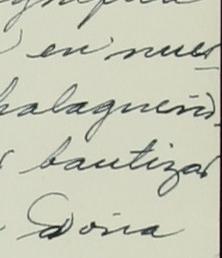 en nues
halagueñ
bautizar
Doña